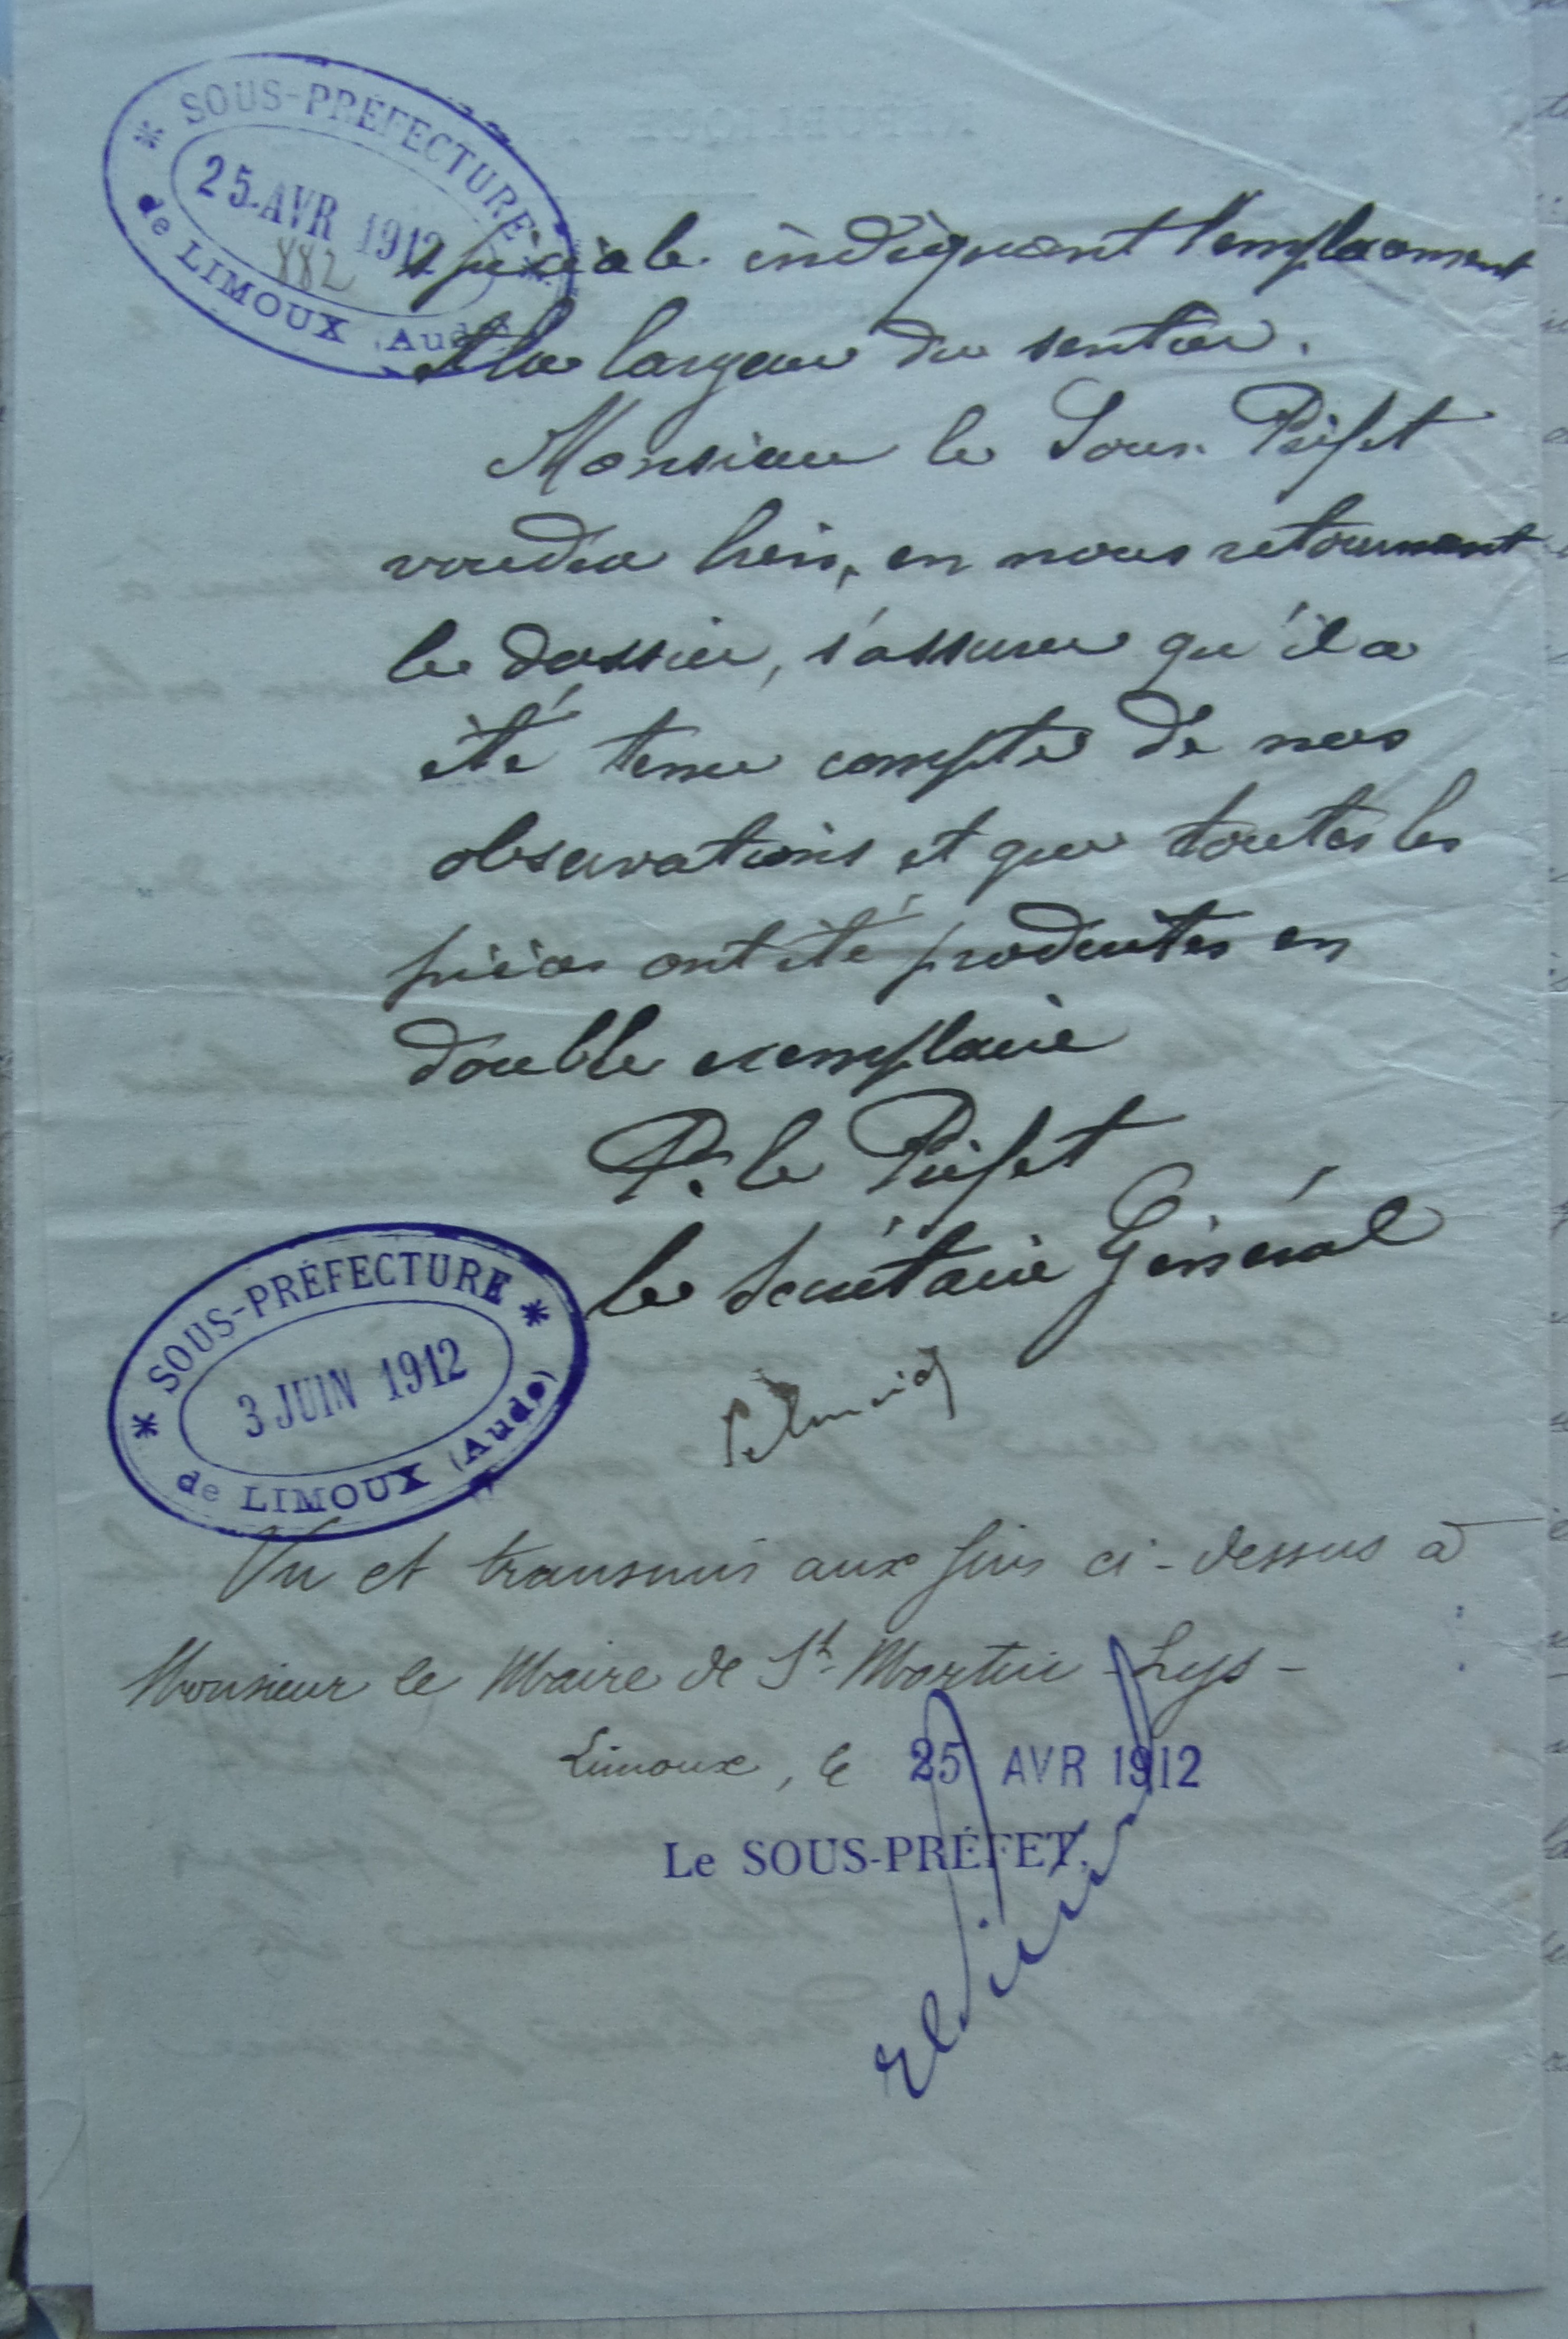 SOUS-PRÉFECTURE
25 AVR 1912
882
de LIMOUX (Aude)
spéciale indiquant l'emplacement
et la largeur du sentier.
Monsieur le Sous-Préfet
voudra bien, en nous retournant
le dossier, s'assurer qu'il a
été tenu compte de nos
observations et que toutes les
pièces ont été produites en
double exemplaire
P. le Préfet
le Secrétaire Général
SOUS-PRÉFECTURE
3 JUIN 1912
de LIMOUX (Aude)
Vu et transmis aux fins ci-dessus à
Monsieur le Maire de St Martin-Lys-
Limoux, le 25 AVR 1912
Le SOUS-PRÉFET,